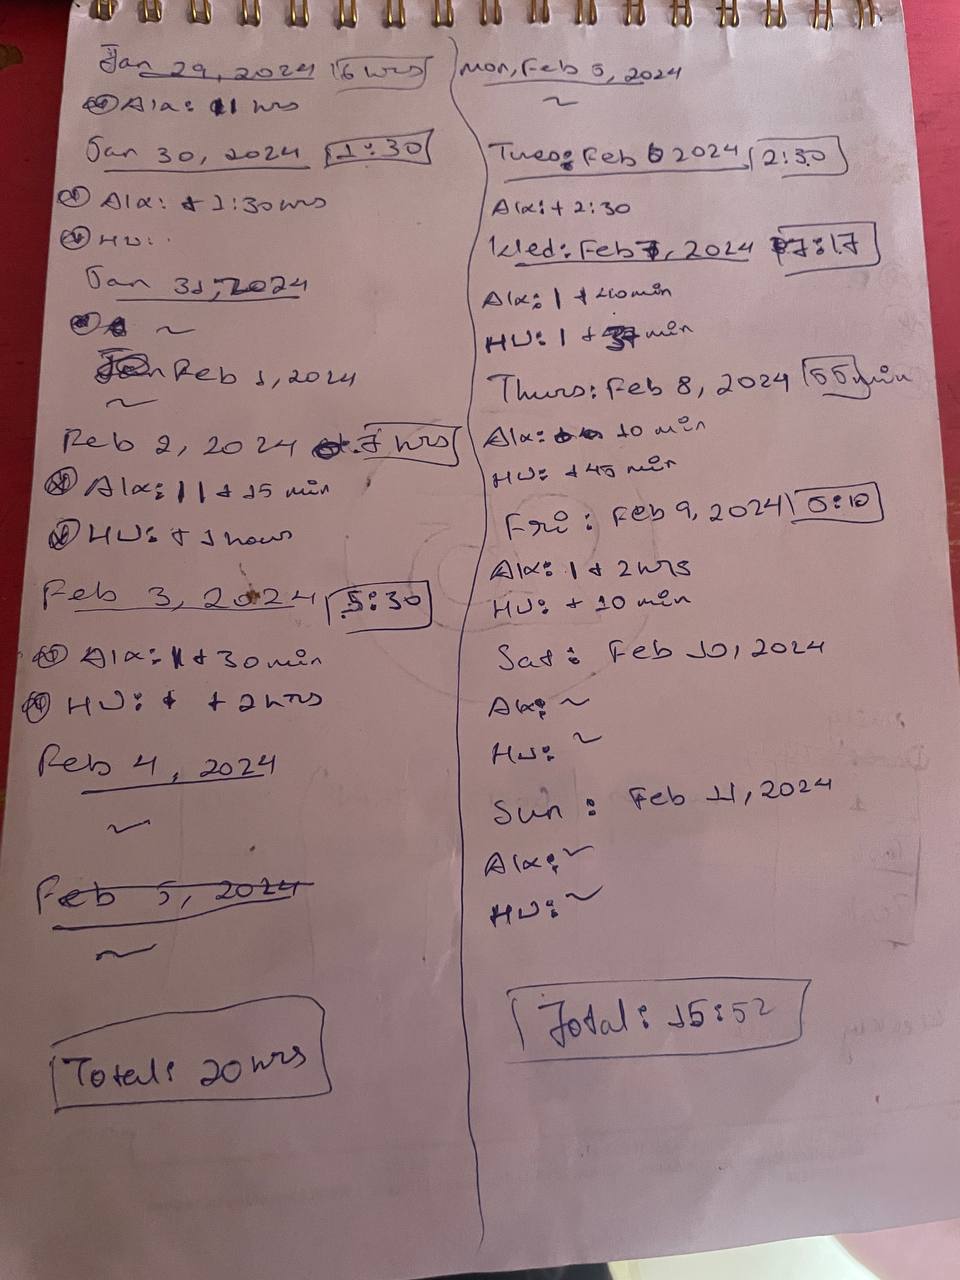 Jan 29, 2024 6 hrs
Alx: 11 hrs
Jan 30, 2024 1:30
Alx: + 1:30 hrs
HU:
Jan 31, 2024
~
Feb 1, 2024
~
Feb 2, 2024 7 hrs
Alx: 11 + 15 min
HU: + 1 hour
Feb 3, 2024 5:30
Alx: 1 + 30 min
HU: + 2 hrs
Feb 4, 2024
~
Feb 5, 2024
~
Total: 20 hrs
Mon, Feb 5, 2024
~
Tues: Feb 6 2024 2:30
Alx: + 2:30
Wed: Feb 7, 2024 7:17
Alx: 1 + 40 min
HU: 1 + 37 min
Thurs: Feb 8, 2024 55 min
Alx: 10 min
HU: + 45 min
Fri: Feb 9, 2024 5:10
Alx: 1 + 2 hrs
HU: + 10 min
Sat: Feb 10, 2024
Alx: ~
HU: ~
Sun: Feb 11, 2024
Alx: ~
HU: ~
Total: 15:52